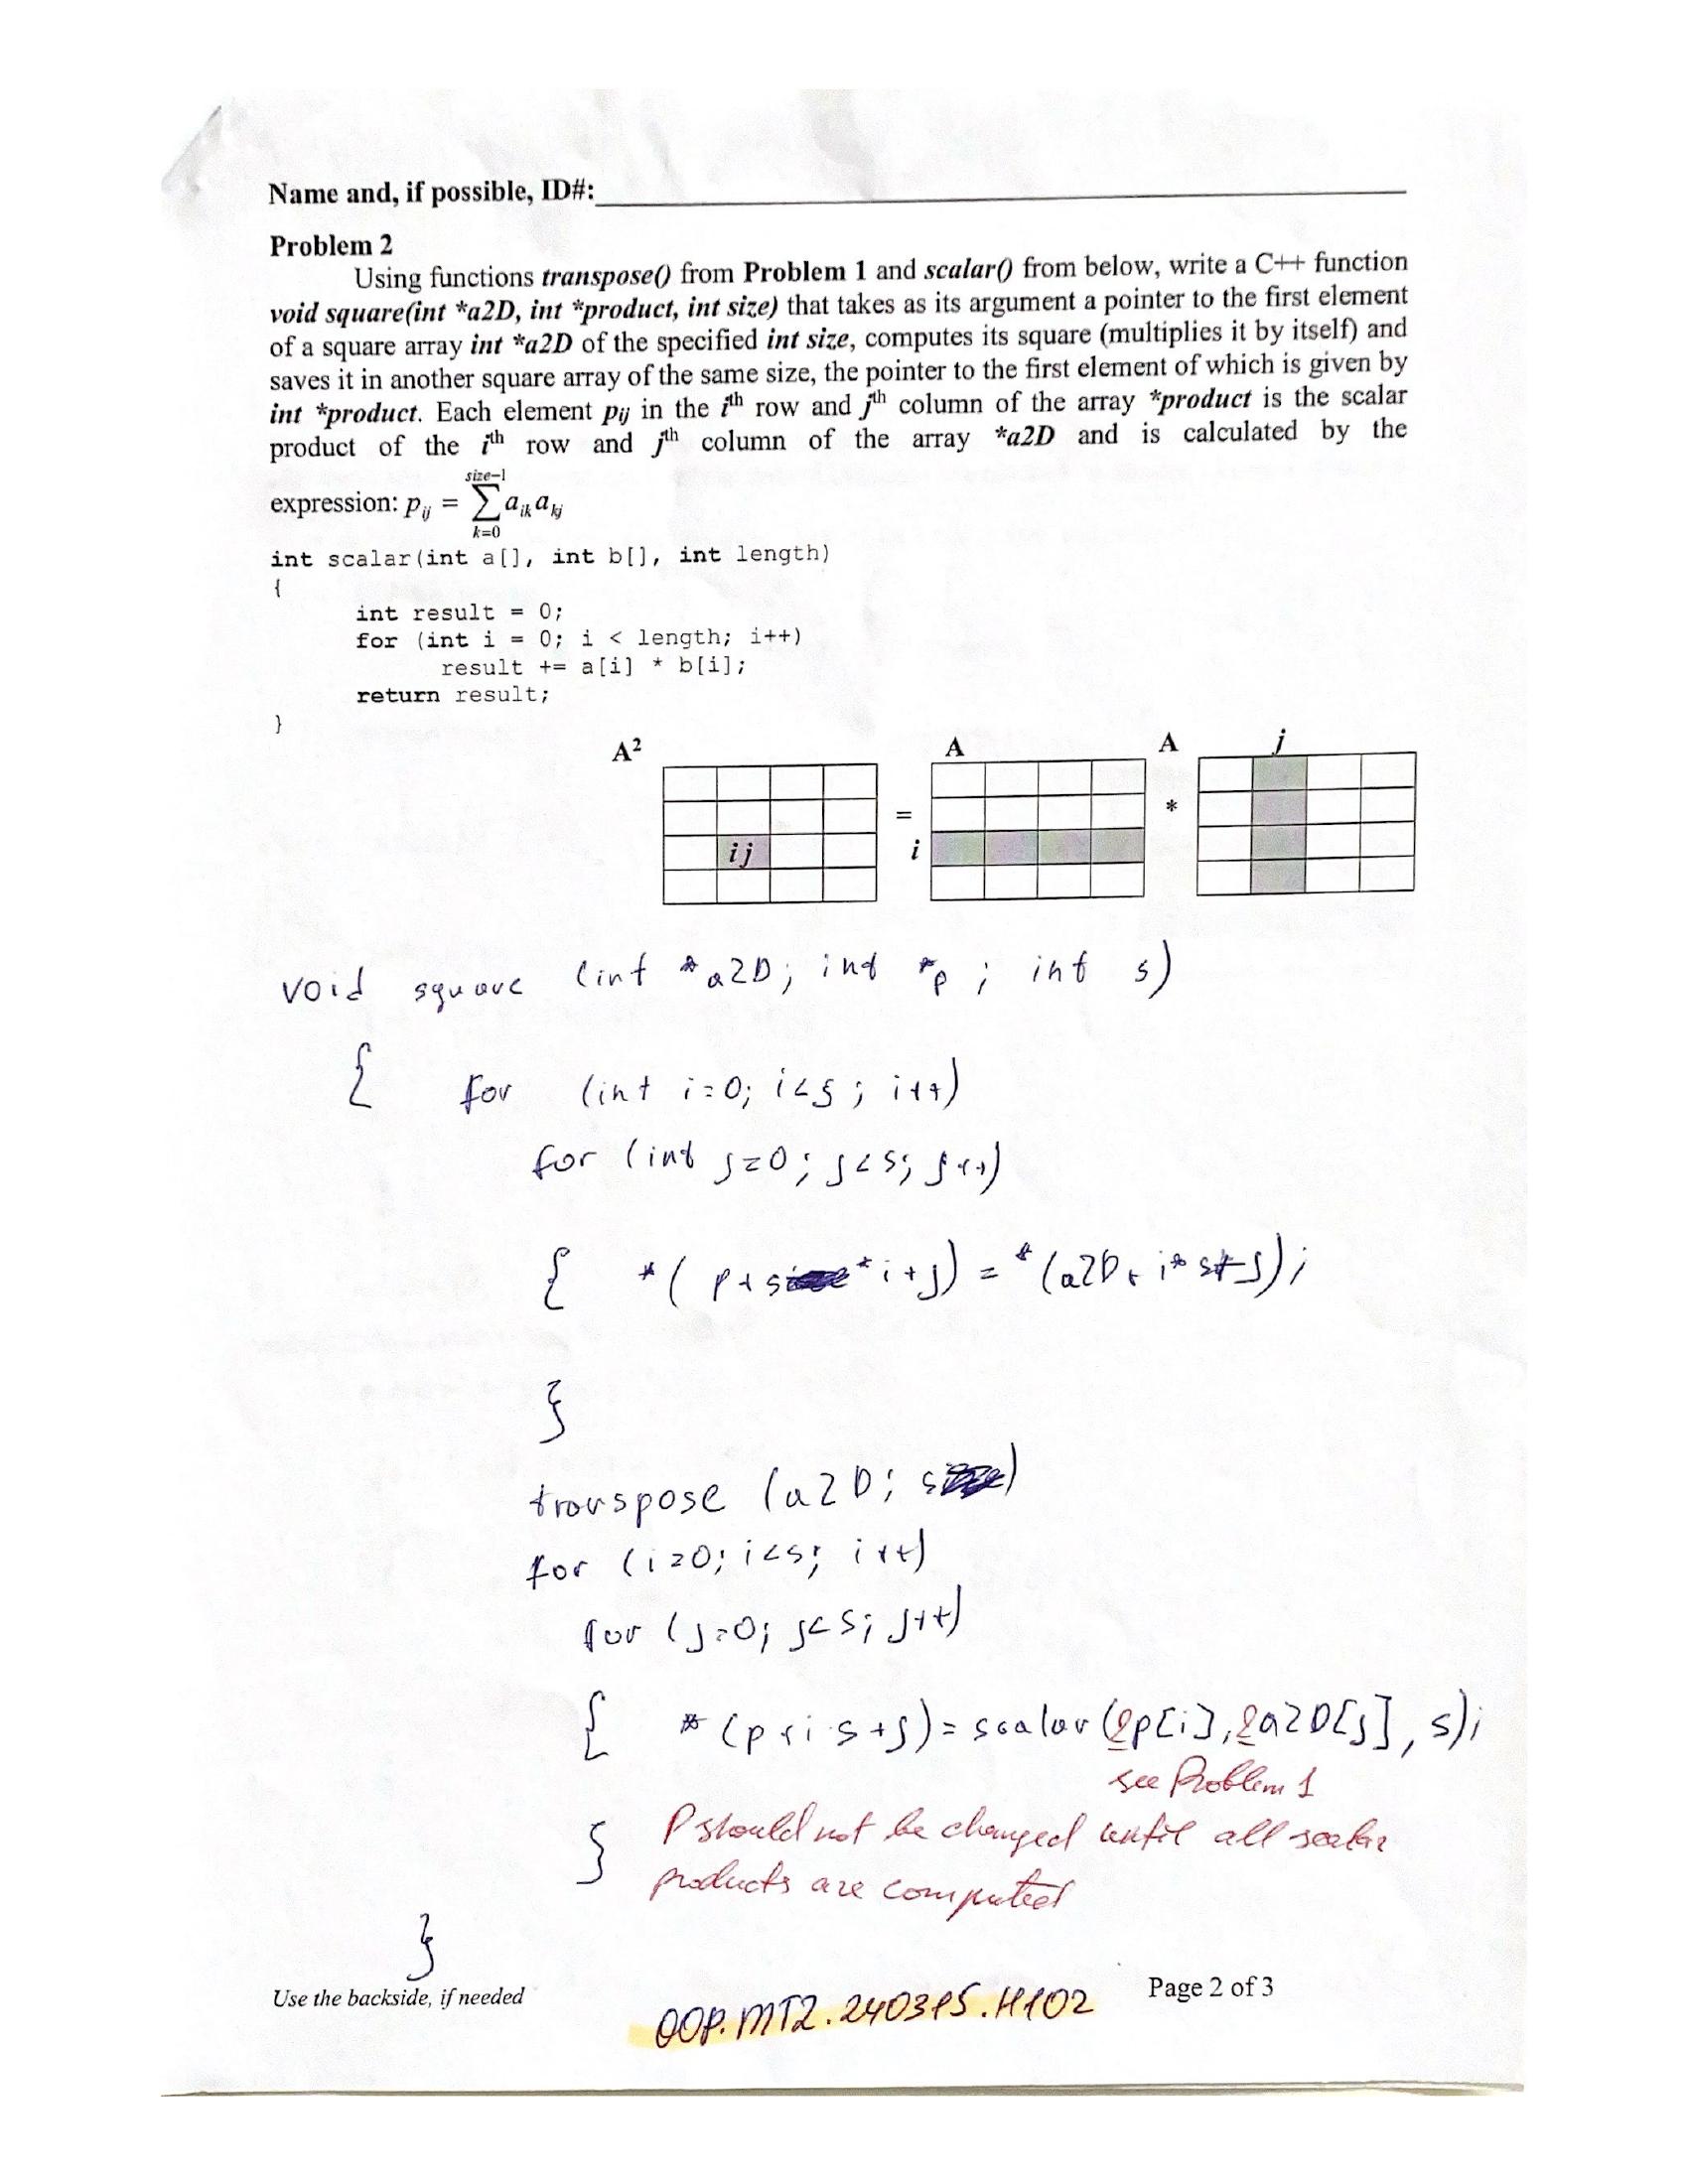 Name and, if possible, ID#:
Problem 2
Using functions transpose() from Problem 1 and scalar() from below, write a C++ function
void square(int *a2D, int *product, int size) that takes as its argument a pointer to the first element
of a square array int *a2D of the specified int size, computes its square (multiplies it by itself) and
saves it in another square array of the same size, the pointer to the first element of which is given by
int *product. Each element pij in the ith row and jth column of the array *product is the scalar
product of the ith row and jth column of the array *a2D and is calculated by the
size-1
expression: pij = ∑ aik akj
k=0
int scalar(int a[], int b[], int length)
{
int result = 0;
for (int i = 0; i < length; i++)
result += a[i] * b[i];
return result;
}
A² A A j
= *
i j i
void square (int *a2D; int *p; int s)
{ for (int i=0; i<s; i++)
for (int j=0; j<s; j++)
{ *(p+s*i+j) = *(a2D+i*s+j);
}
transpose (a2D; s)
for (i=0; i<s; i++)
for (j=0; j<s; j++)
{ *(p+i·s+j)=scalar(&p[i],&a2D[j],s);
see Problem 1
} P should not be changed until all scalar
products are computed
}
Use the backside, if needed
Page 2 of 3
OOP.MT2.240315.H102